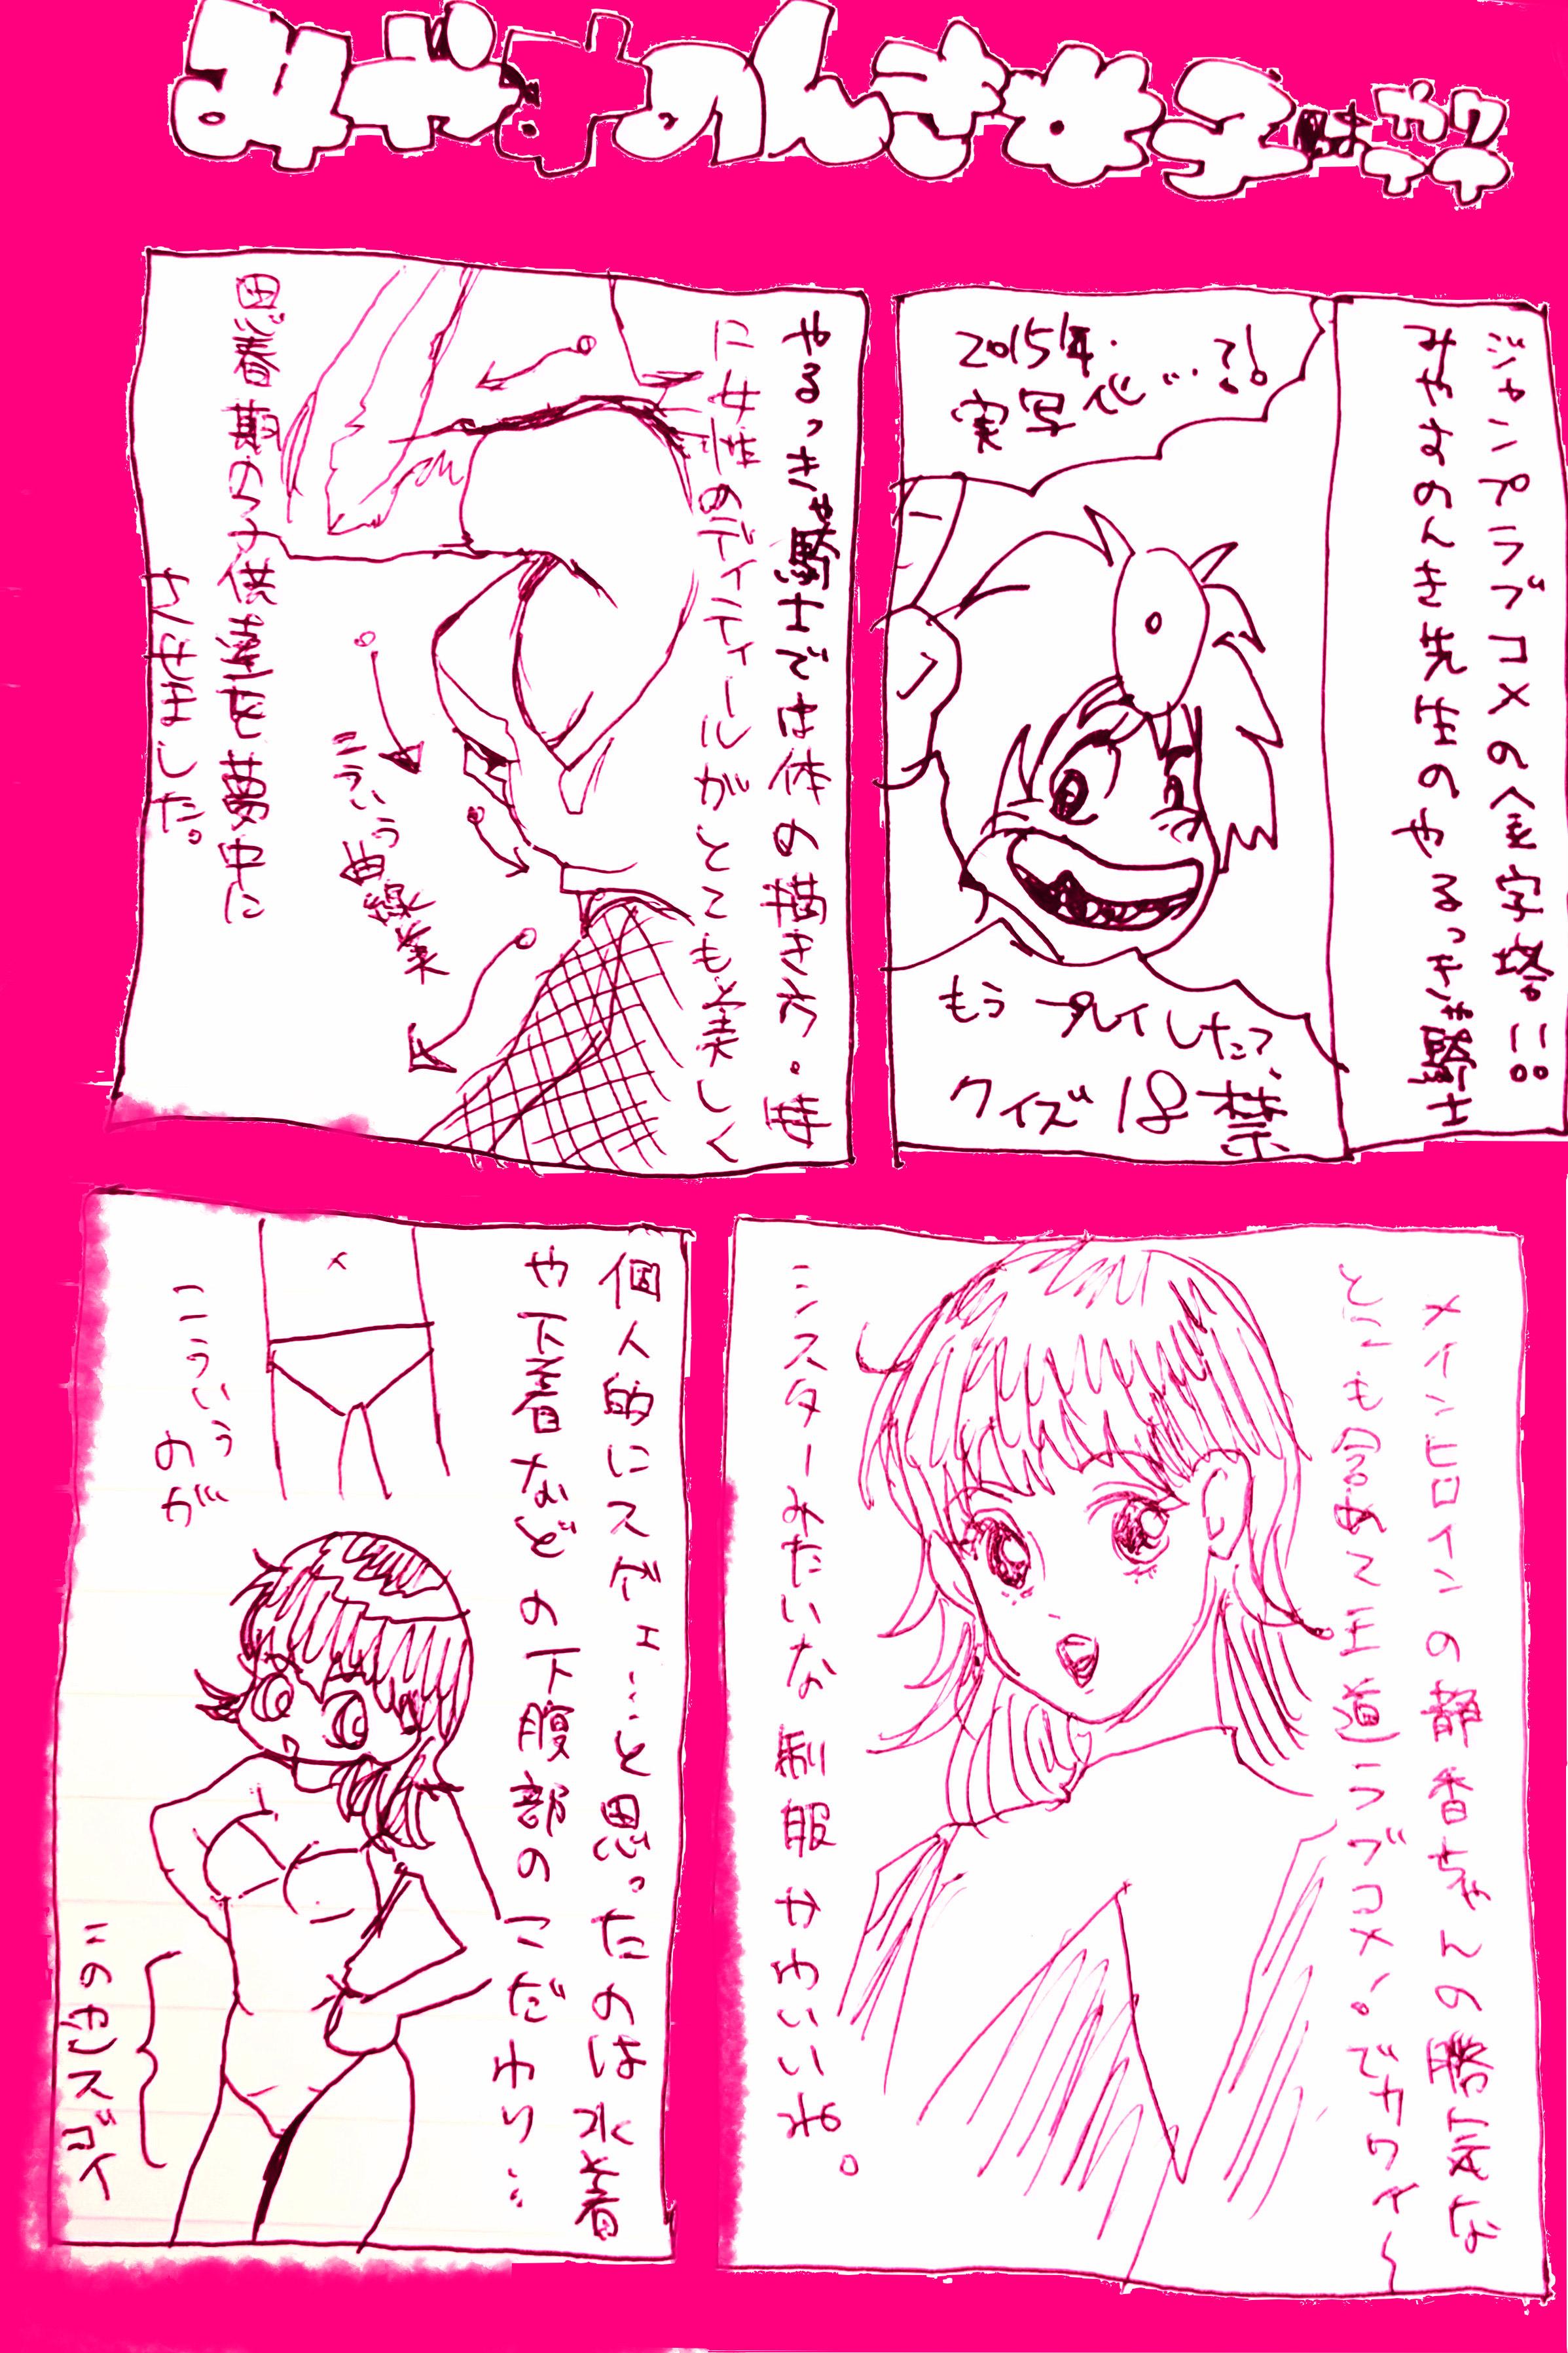 みやすのんき女子はやや
ジャンプラブコメの金字塔!!
みやすのんき先生のやるっきゃ騎士
2015年.
実写化…?!
もう プレイした?
クイズ18禁
やるっきゃ騎士では体の描き方。毎
に女性のディティールがとても美しく
こういう曲線美
思春期の子供達を夢中に
させました。
メインヒロインの静香ちゃんの勝気な
とこも含めて王道ラブコメ!でカワイ〜
シスターみたいな制服かわいいね。
個人的にスゲェ…と思ったのは水着
や下着などの下腹部のこだわり…
こういう
のが
スゴイ